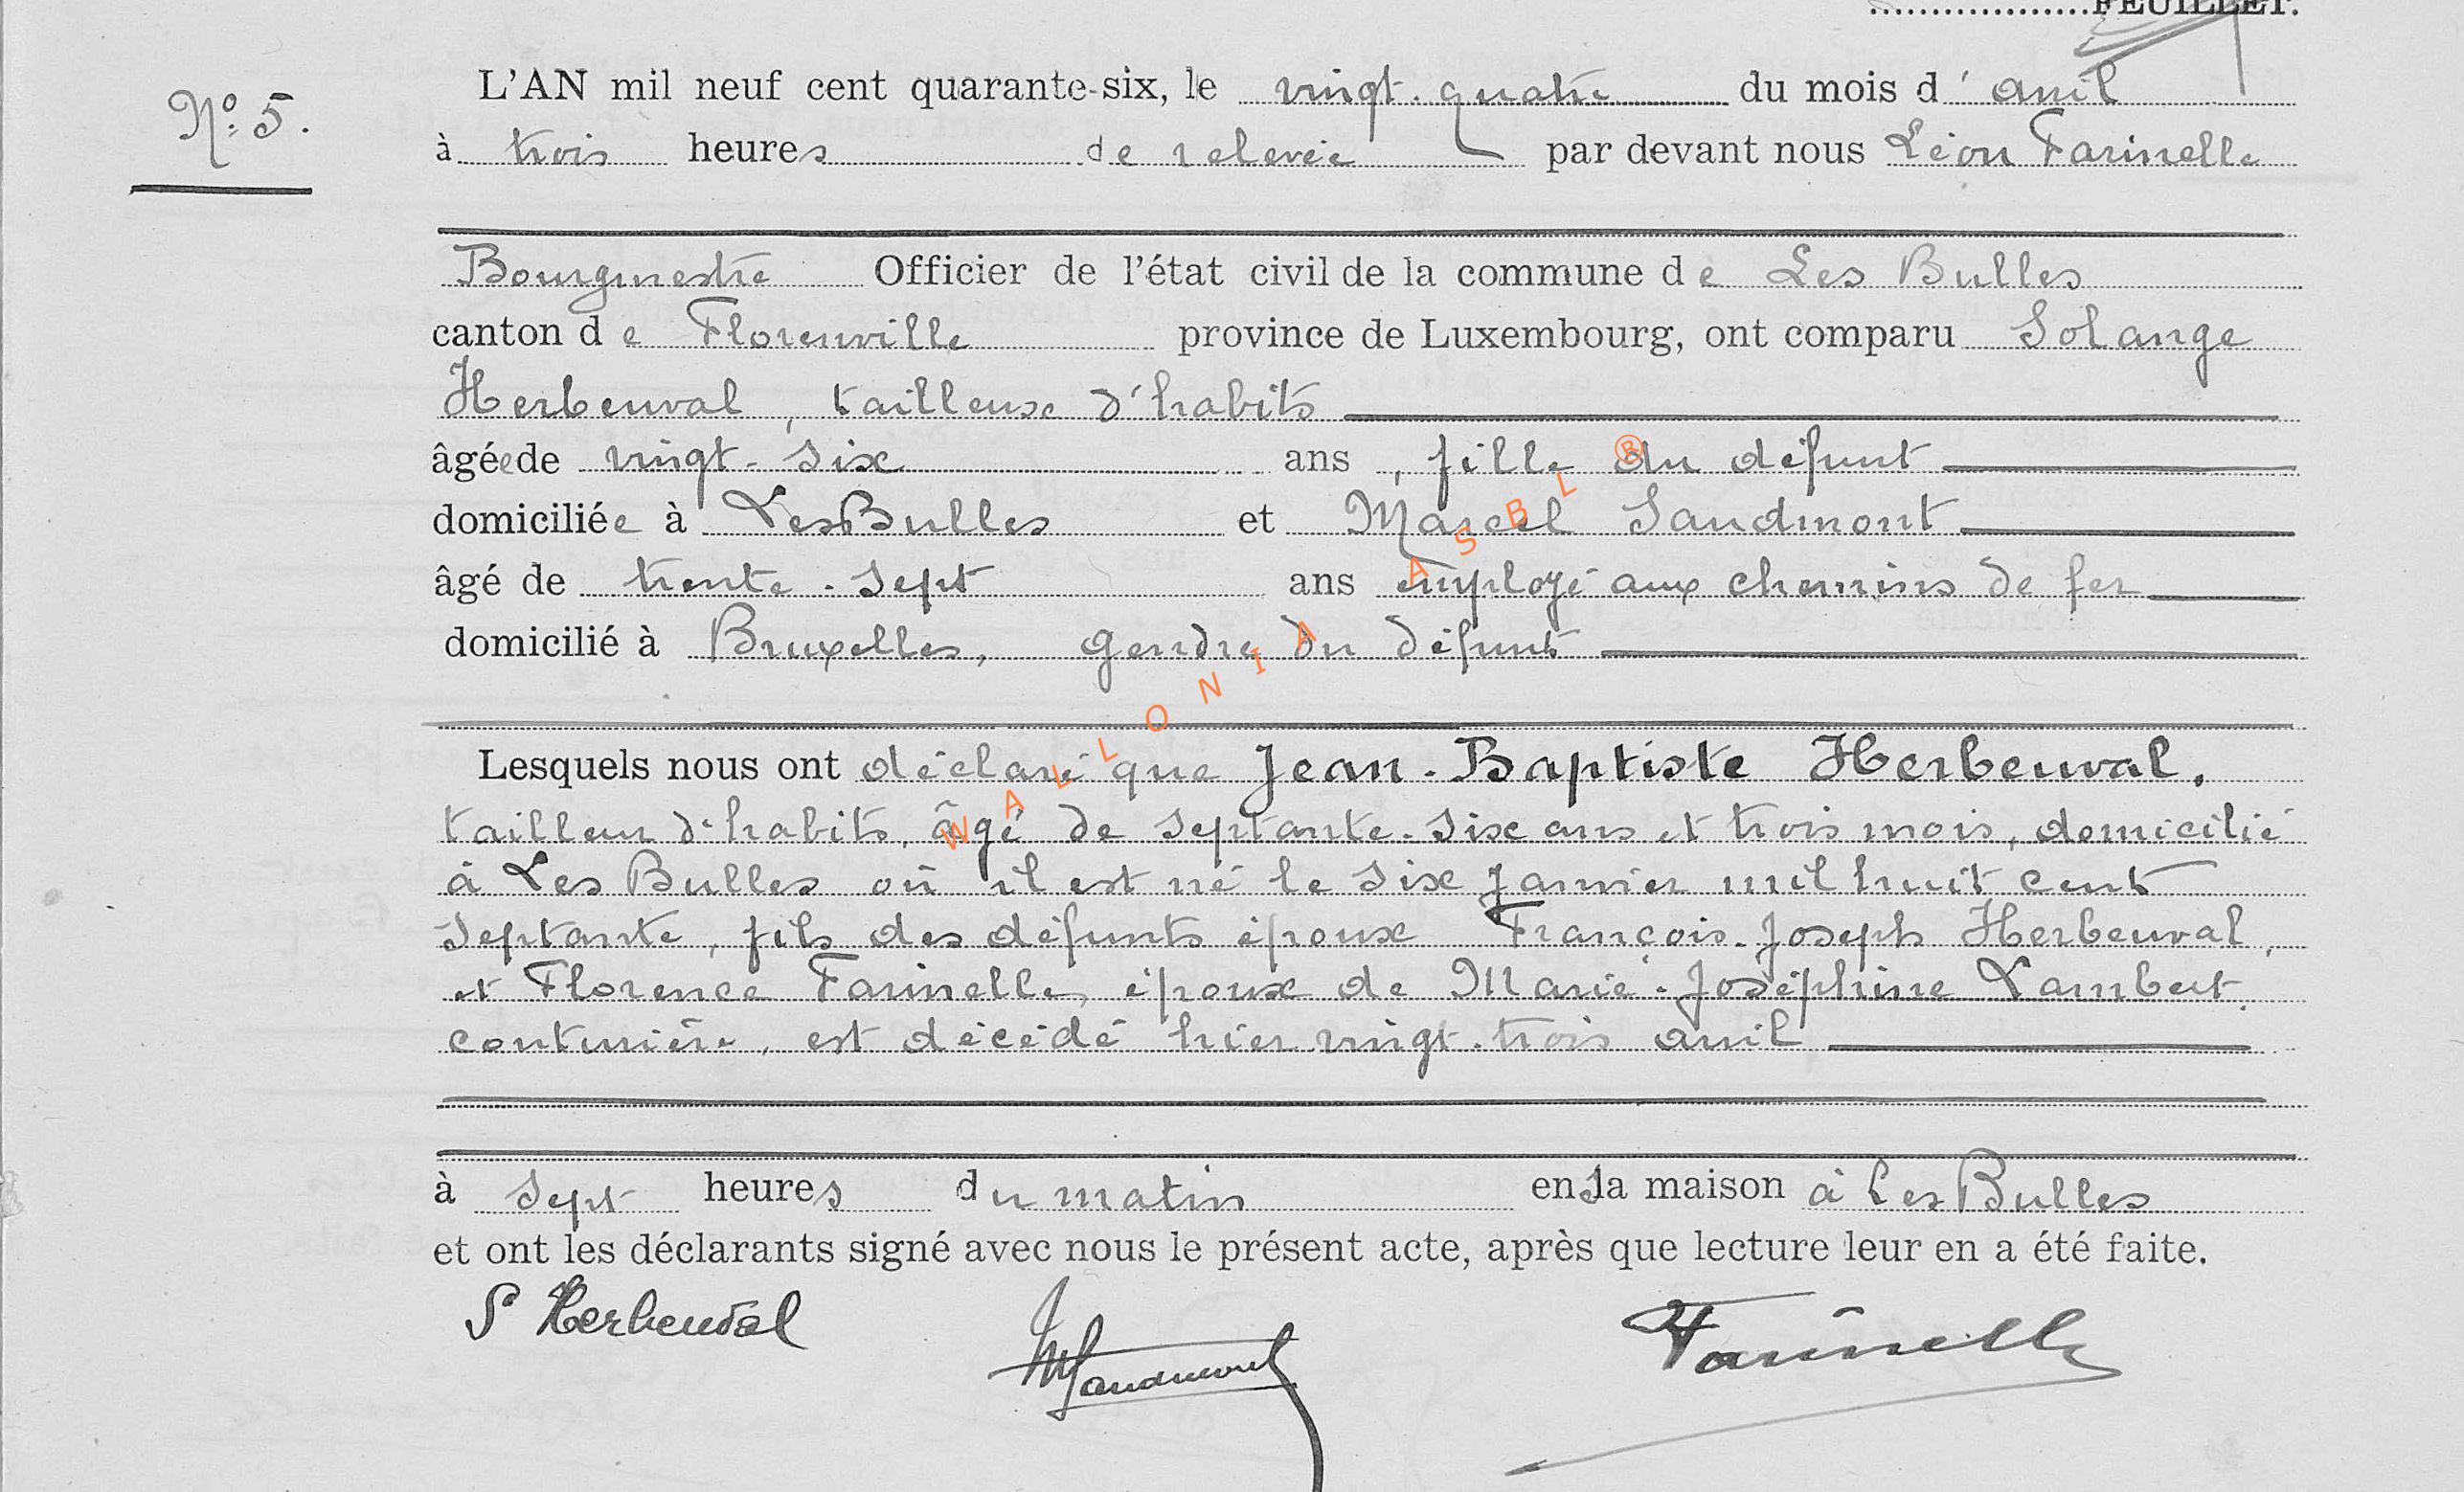 FEUILLET.
N° 5.
L'AN mil neuf cent quarante-six, le vingt-quatre du mois d'avril
à trois heures de relevée par devant nous Léon Farinelle
Bourgmestre Officier de l'état civil de la commune de Les Bulles
canton de Florenville province de Luxembourg, ont comparu Solange
Herbeuval, tailleuse d'habits
âgée de vingt-six ans, fille du défunt
domiciliée à Les Bulles et Marcel Saudmont
âgé de trente-sept ans employé aux chemins de fer
domicilié à Bruxelles, gendre du défunt
Lesquels nous ont déclaré que Jean-Baptiste Herbeuval,
tailleur d'habits, âgé de septante-six ans et trois mois, domicilié
à Les Bulles où il est né le six janvier mil huit cent
septante, fils des défunts époux François-Joseph Herbeuval,
et Florence Farinelle, époux de Marie-Joséphine Lambert,
couturière, est décédé hier vingt-trois avril
à sept heures du matin en sa maison à Les Bulles
et ont les déclarants signé avec nous le présent acte, après que lecture leur en a été faite.
S Herbeuval MSaudmont Farinelle
WALLONIA ASBL ®